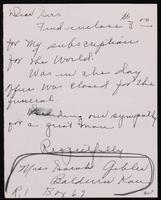 Dear Sirs
Find enclose $3.00
for My subscription
for the World.
Was in the day
office was closed for the
funeral.
Sending our sympathy
for a great man
Respectfully
Miss Sarah Gibler
Baldwin Kan
R.1 Box 69